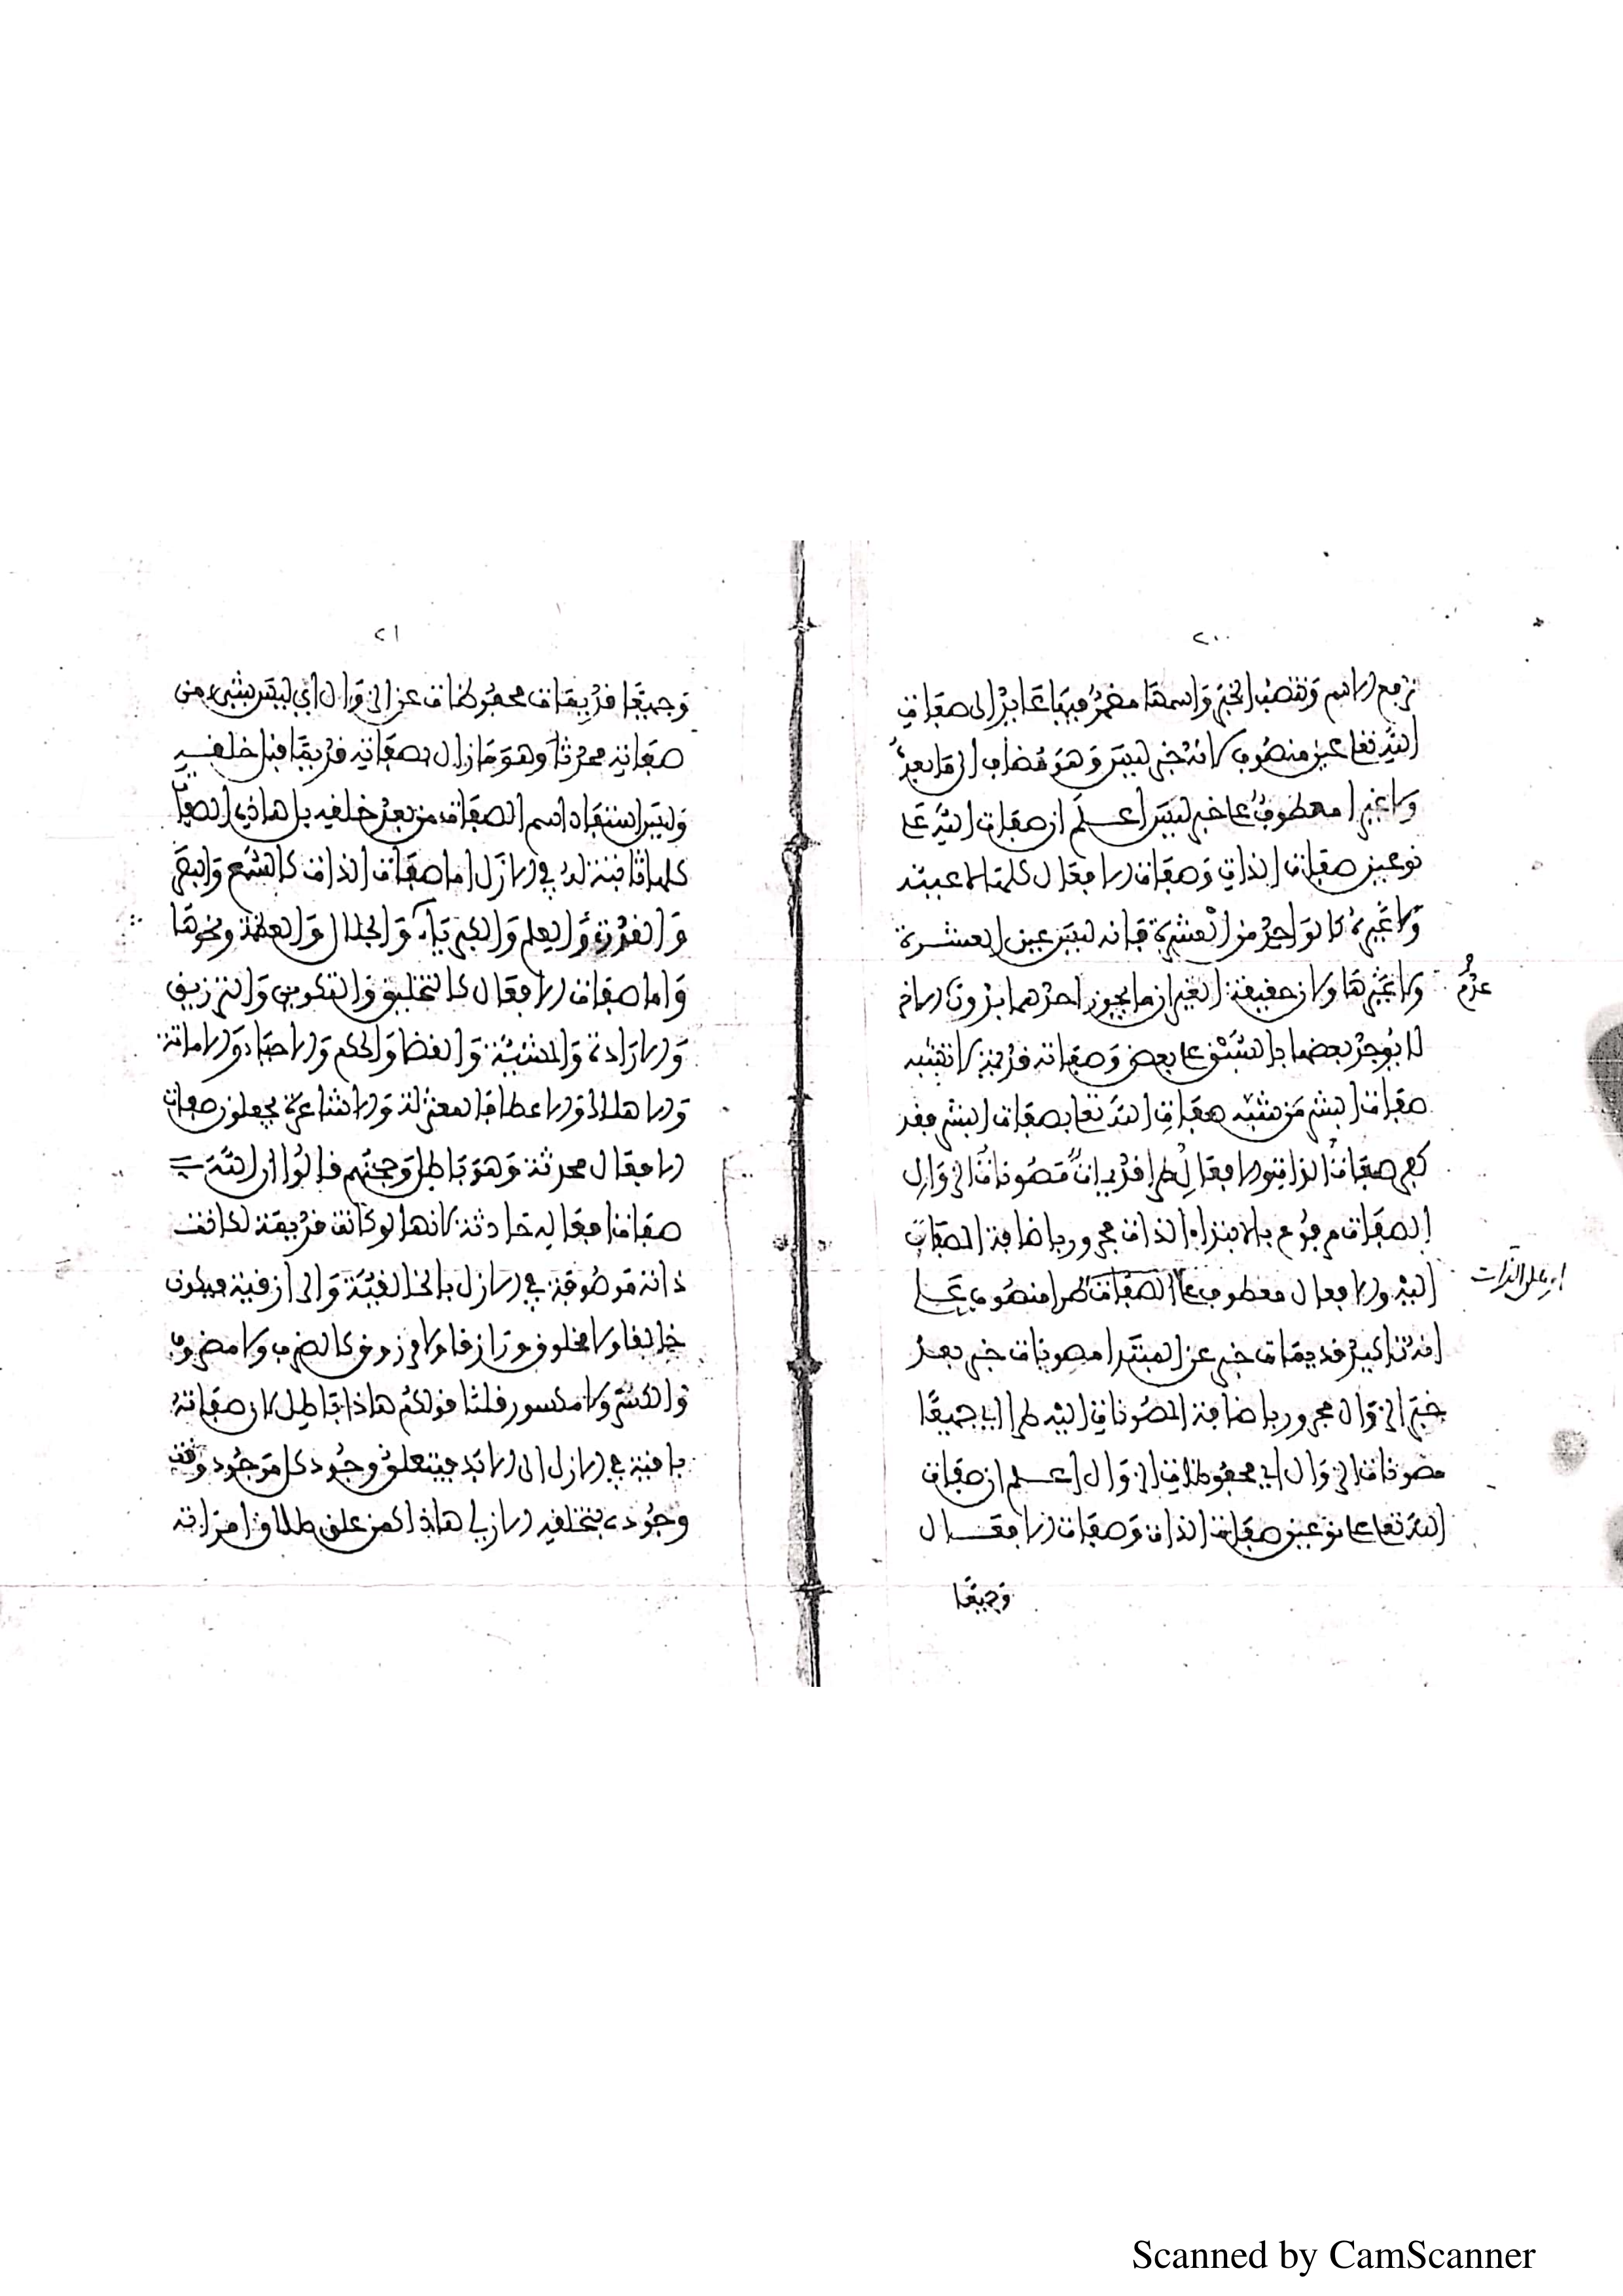 ٢٠
ترفع الاسم وتنصب الخبر واسمها مضمر فيها عايد الى صفات
الله تعا عين منصوب لانه خبر ليس وهو مضاف الى ما بعده
ولا غيرا معطوف عا خبر ليس اعلم ان صفات الله عا
نوعين صفات الذات وصفات الافعال كلها لا عينه
ولا غيره كالواحد من العشرة فانه ليس عين العشرة
ولا غيرها ولان حقيقة الغيران ما يجوز احدهما بدون الاخر
عدم
لا يوجد بعضها بالسبق عا بعض وصفاته قديمة لا تشبه
صفات البشر من شبه صفات الله تعا بصفات البشر فقد
كفر صفات الذات والافعال طرا قديمات مصونات الزوال
الصفات مرفوع بالابتداء الذات مجرور باضافة الصفات
اليه والافعال معطوف عا الصفات طرا منصوب عا
اي على الذات
انه تاكيد قديمات خبر عن المبتدا مصونات خبر بعد
خبر الزوال مجرور باضافة المصونات اليه طرا اي جميعا
مصونات الزوال اي محفوظات الزوال اعلم ان صفات
الله تعا عا نوعين صفات الذات وصفات الافعال
وجميعا
٢١
وجميعا قديمات محفوظات عن الزوال اي ليس بشيء من
صفاته محدثا وهو ما زال بصفاته قديما قبل خلقه
وليس استفاد اسم الصفات من بعد خلقه بل هاذه الصفات
كلها ثابتة له في الازل اما صفات الذات كالسمع والبصر
والقدرة والعلم والكبرياء والجلال والعظمة ونحوها
واما صفات الافعال كالتخليق والتكوين والترزيق
والارادة والمشيئة والقضا والحكم والاحياء والاماتة
والاهلاك والاعطا فالمعتزلة والاشاعرة يجعلون صفات
الافعال محدثة وهو باطل وحجتهم قالوا ان الله
صفات افعاله حادثة لانها لو كانت قديمة لكانت
ذاته موصوفة في الازل بالخالقية والرازقية فيكون
خالقا ولا مخلوق ورازقا ولا مرزوق كالضرب ولا مضروب
والكسر ولا مكسور قلنا قولكم هاذا باطل لان صفاته
باقية في الازل الى الابد فيتعلق وجود كل موجود وقت
وجوده بتخلقه الازلي هاذا كمن علق طلاق امراته
Scanned by CamScanner